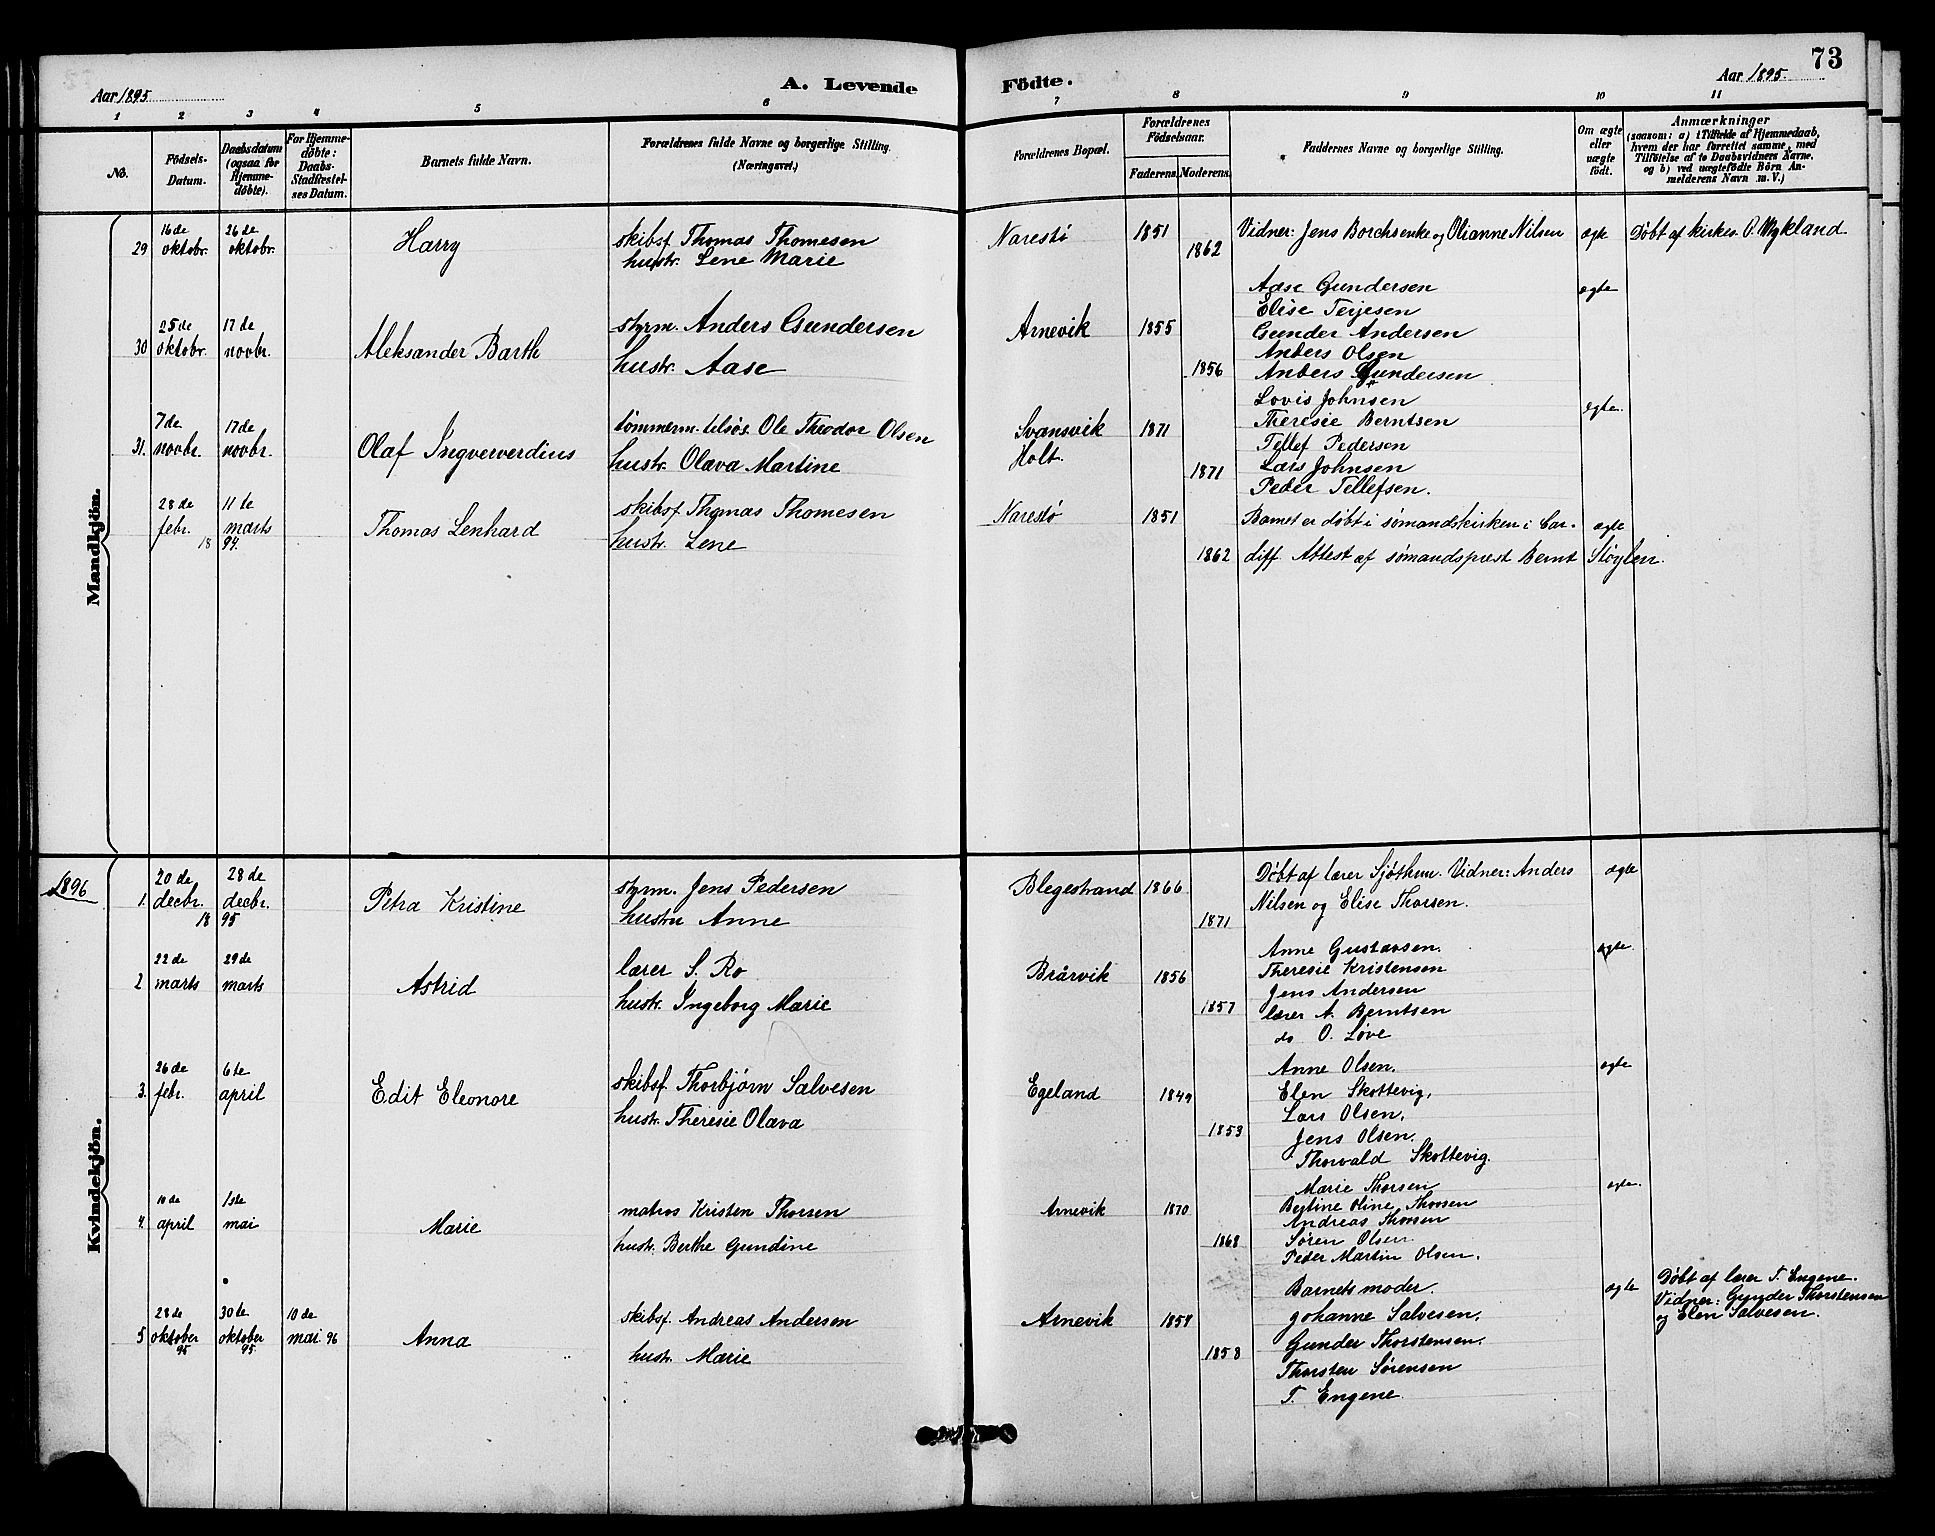 73
Aar 1895.
A. Levende Födte.
Aar 1895.
1 2 3 4 5 6 7 8 9 10 11
No.
Födsels-
Datum.
Daabsdatum
(ogsaa for
Hjemme-
döbte).
For Hjemme-
döbte:
Daabs-
Stadfæstel-
ses Datum.
Barnets fulde Navn.
Forældrenes fulde Navne og borgerlige Stilling.
(Næringsvei.)
Forældrenes Bopæl.
Forældrenes
Födselsaar.
Faderens. Moderens.
Faddernes Navne og borgerlige Stilling.
Om ægte
eller
uægte
födt.
Anmærkninger
(saasom: a) i Tilfælde af Hjemmedaab,
hvem der har forrettet samme, med
Tilföielse af to Daabsvidners Navne,
og b) ved uægtefödte Börn An-
melderens Navn m. V.)
Mandkjön.
29
16de
oktobr.
26de
oktobr.
Harry
skibsf. Thomas Thomesen
hustr. Lene Marie
Narestø
1851
1862
Vidner: Jens Borchsenke og Olianne Nilsen
ægte
Døbt af kirkes. O. Mykland
30
25de
oktobr.
17de
novbr.
Aleksander Barth
styrm. Anders Gundersen
hustr. Aase
Arnevik
1855
1856
Aase Gundersen
Elise Terjesen
Gunder Andersen
Anders Olsen
Anders Gundersen
ægte
31.
7de
novbr.
17de
novbr.
Olaf Ingververdius
tømmerm. tilsøs Ole Theodor Olsen
hustr. Olava Martine
Svansvik
Holt.
1871
1871
Lovis Johnsen
Theresie Berntsen
Tellef Pedersen
Lars Johnsen
Peder Tellefsen.
ægte.
28de
febr.
11te
marts
18 94.
Thomas Lenhard
skibsf Thomas Thomesen
hustr. Lene
Narestø
1851
1862
Barnet er døbt i sømandskirken i Car-
diff. Attest af sømandsprest Bernt Støylen.
ægte
Kvindekjön.
1896
1.
20de
decbr.
28de
decbr.
18 95
Petra Kristine
styrm. Jens Pedersen
hustru Anne
Blegestrand
1866
1871
Døbt af lærer Sjøthun. Vidner: Anders
Nilsen og Elise Thorsen.
ægte
2
22de
marts
29de
marts
Astrid
lærer S. Ro
hustr. Ingeborg Marie
Brårvik
1856
1857
Anne Gustavsen.
Theresie Kristensen
Jens Andersen
lærer A. Berntsen
do O. Løve
ægte
3.
26de
febr.
6te
april
Edit Eleonore
skibsf. Thorbjørn Salvesen
hustr. Theresie Olava
Egeland
1849
1853
Anne Olsen.
Elen Skottevig.
Lars Olsen.
Jens Olsen.
Thorvald Skottevig.
ægte
4.
10de
april
1ste
mai
Marie
matros Kristen Thorsen
hustr. Berthe Gundine
Arnevik
1870
1868
Marie Thorsen
Bertine Oline Thorsen
Andreas Thorsen
Søren Olsen.
Peder Martin Olsen.
ægte.
5
28de
oktober
95
30te
oktober
95
10de
mai 96
Anna
skibsf. Andreas Andersen
hustr. Marie
Arnevik
1859
1858
Barnets moder.
Johanne Salvesen.
Gunder Thorstensen.
Thorsten Sørensen
T. Engene
ægte
Døbt af lærer T. Engene.
Vidner: Gunder Thorstensen
og Elen Salvesen.